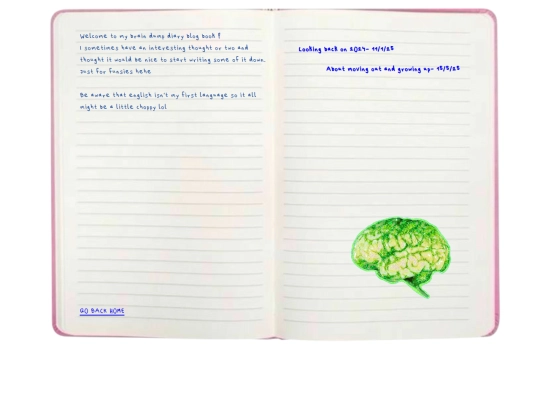 Welcome to my brain dump diary blog book!
I sometimes have an interesting thought or two and
thought it would be nice to start writing some of it down.
Just for funsies hehe
Be aware that english isn't my first language so it all
might be a little choppy lol
GO BACK HOME
Looking back on 2024- 11/1/25
About moving out and growing up- 15/5/25